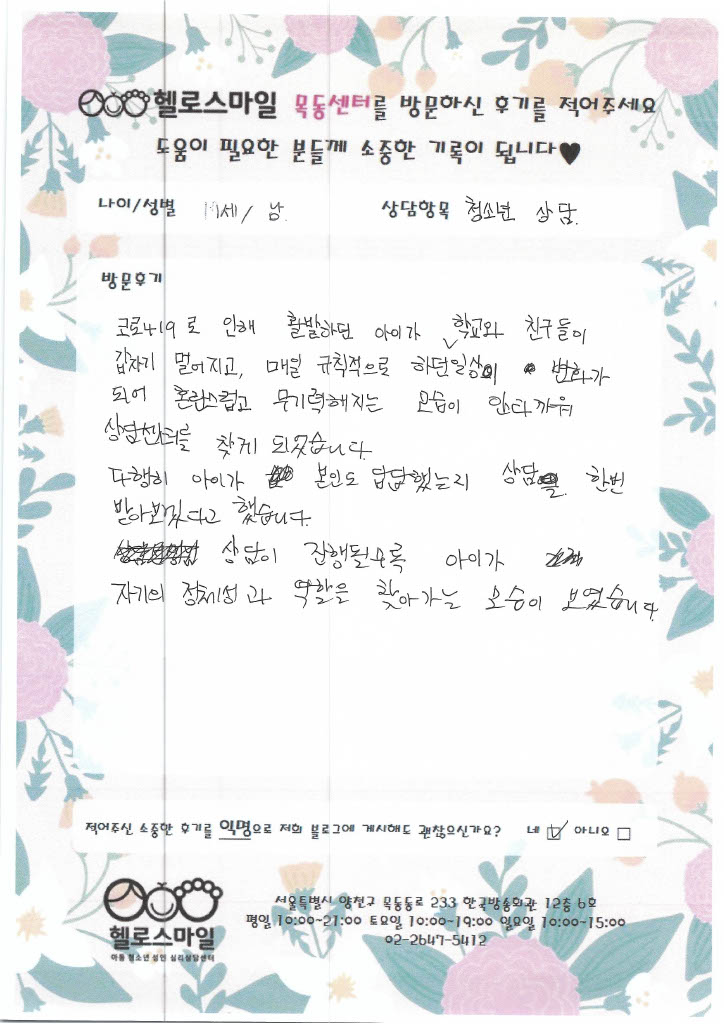 헬로스마일 목동센터를 방문하신 후기를 적어주세요
도움이 필요한 분들께 소중한 기록이 됩니다♥
나이/성별 세/남. 상담항목 청소년 상담.
방문후기
코로나19로 인해 활발하던 아이가 학교와 친구들이
갑자기 멀어지고, 매일 규칙적으로 하던일상이 변화가
되어 혼란스럽고 무기력해지는 모습이 안타까워
상담센터를 찾게 되었습니다.
다행히 아이가 본인도 답답했는지 상담을 한번
받아보겠다고 했습니다.
상담이 진행될수록 아이가
자기의 정체성과 역할을 찾아가는 모습이 보였습니다.
적어주신 소중한 후기를 익명으로 저희 블로그에 게시해도 괜찮으신가요? 네 ☑ 아니오 □
헬로스마일
아동 청소년 성인 심리상담센터
서울특별시 양천구 목동동로 233 한국방송회관 12층 6호
평일 10:00~21:00 토요일 10:00~19:00 일요일 10:00~15:00
02-2647-5412